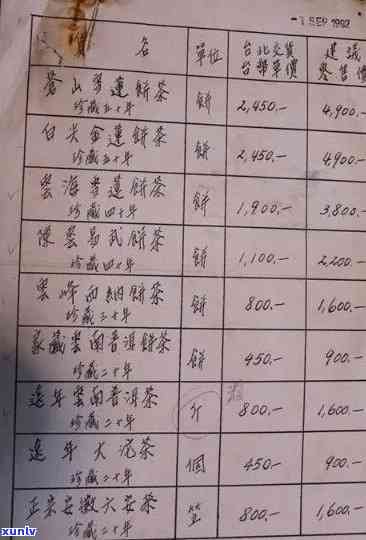 -1 SEP 1992
名 單位 台北交貨 建議
台幣單價 零售價
蒼山雪蓮餅茶 餅 2,450.- 4,900.-
珍藏五十年
白尖金蓮餅茶 餅 2,450.- 4,900.-
珍藏五十年
雲海雪蓮餅茶 餅 1,900.- 3,800.-
珍藏四十年
陳雲易武餅茶 餅 1,100.- 2,200.-
珍藏四十年
雲峰西納餅茶 餅 800.- 1,600.-
珍藏三十年
家藏雲南普洱餅茶 餅 450.- 900.-
珍藏二十年
遠年雲南普洱茶 斤 800.- 1,600.-
珍藏二十年
遠年大沱茶 個 450.- 900.-
珍藏二十年
正宗安徽六安茶 800.- 1,600.-
珍藏二十年
xunlv
www.xunlv.cn